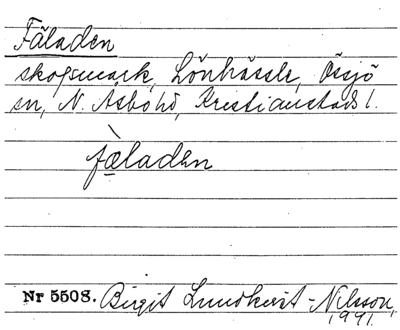 Fäladen
skogsmark, Lönhässle, Össjö
sn, N. Åsbo hd, Kristianstads l.
fàeladen
Nr 5508. Birgit Lundkvist-Nilsson,
1991.